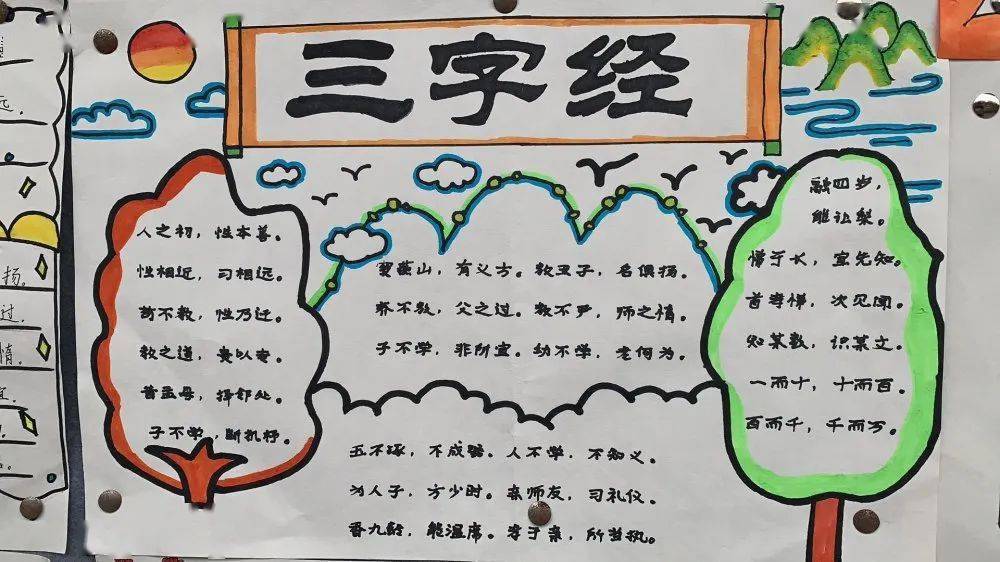 三字经
人之初，性本善。
性相近，习相远。
苟不教，性乃迁。
教之道，贵以专。
昔孟母，择邻处。
子不学，断机杼。
窦燕山，有义方。教五子，名俱扬。
养不教，父之过。教不严，师之惰。
子不学，非所宜。幼不学，老何为。
玉不琢，不成器。人不学，不知义。
为人子，方少时。亲师友，习礼仪。
香九龄，能温席。孝于亲，所当执。
融四岁，
能让梨。
悌于长，宜先知。
首孝悌，次见闻。
知某数，识某文。
一而十，十而百。
百而千，千而万。
远。
扬。
过。
情。